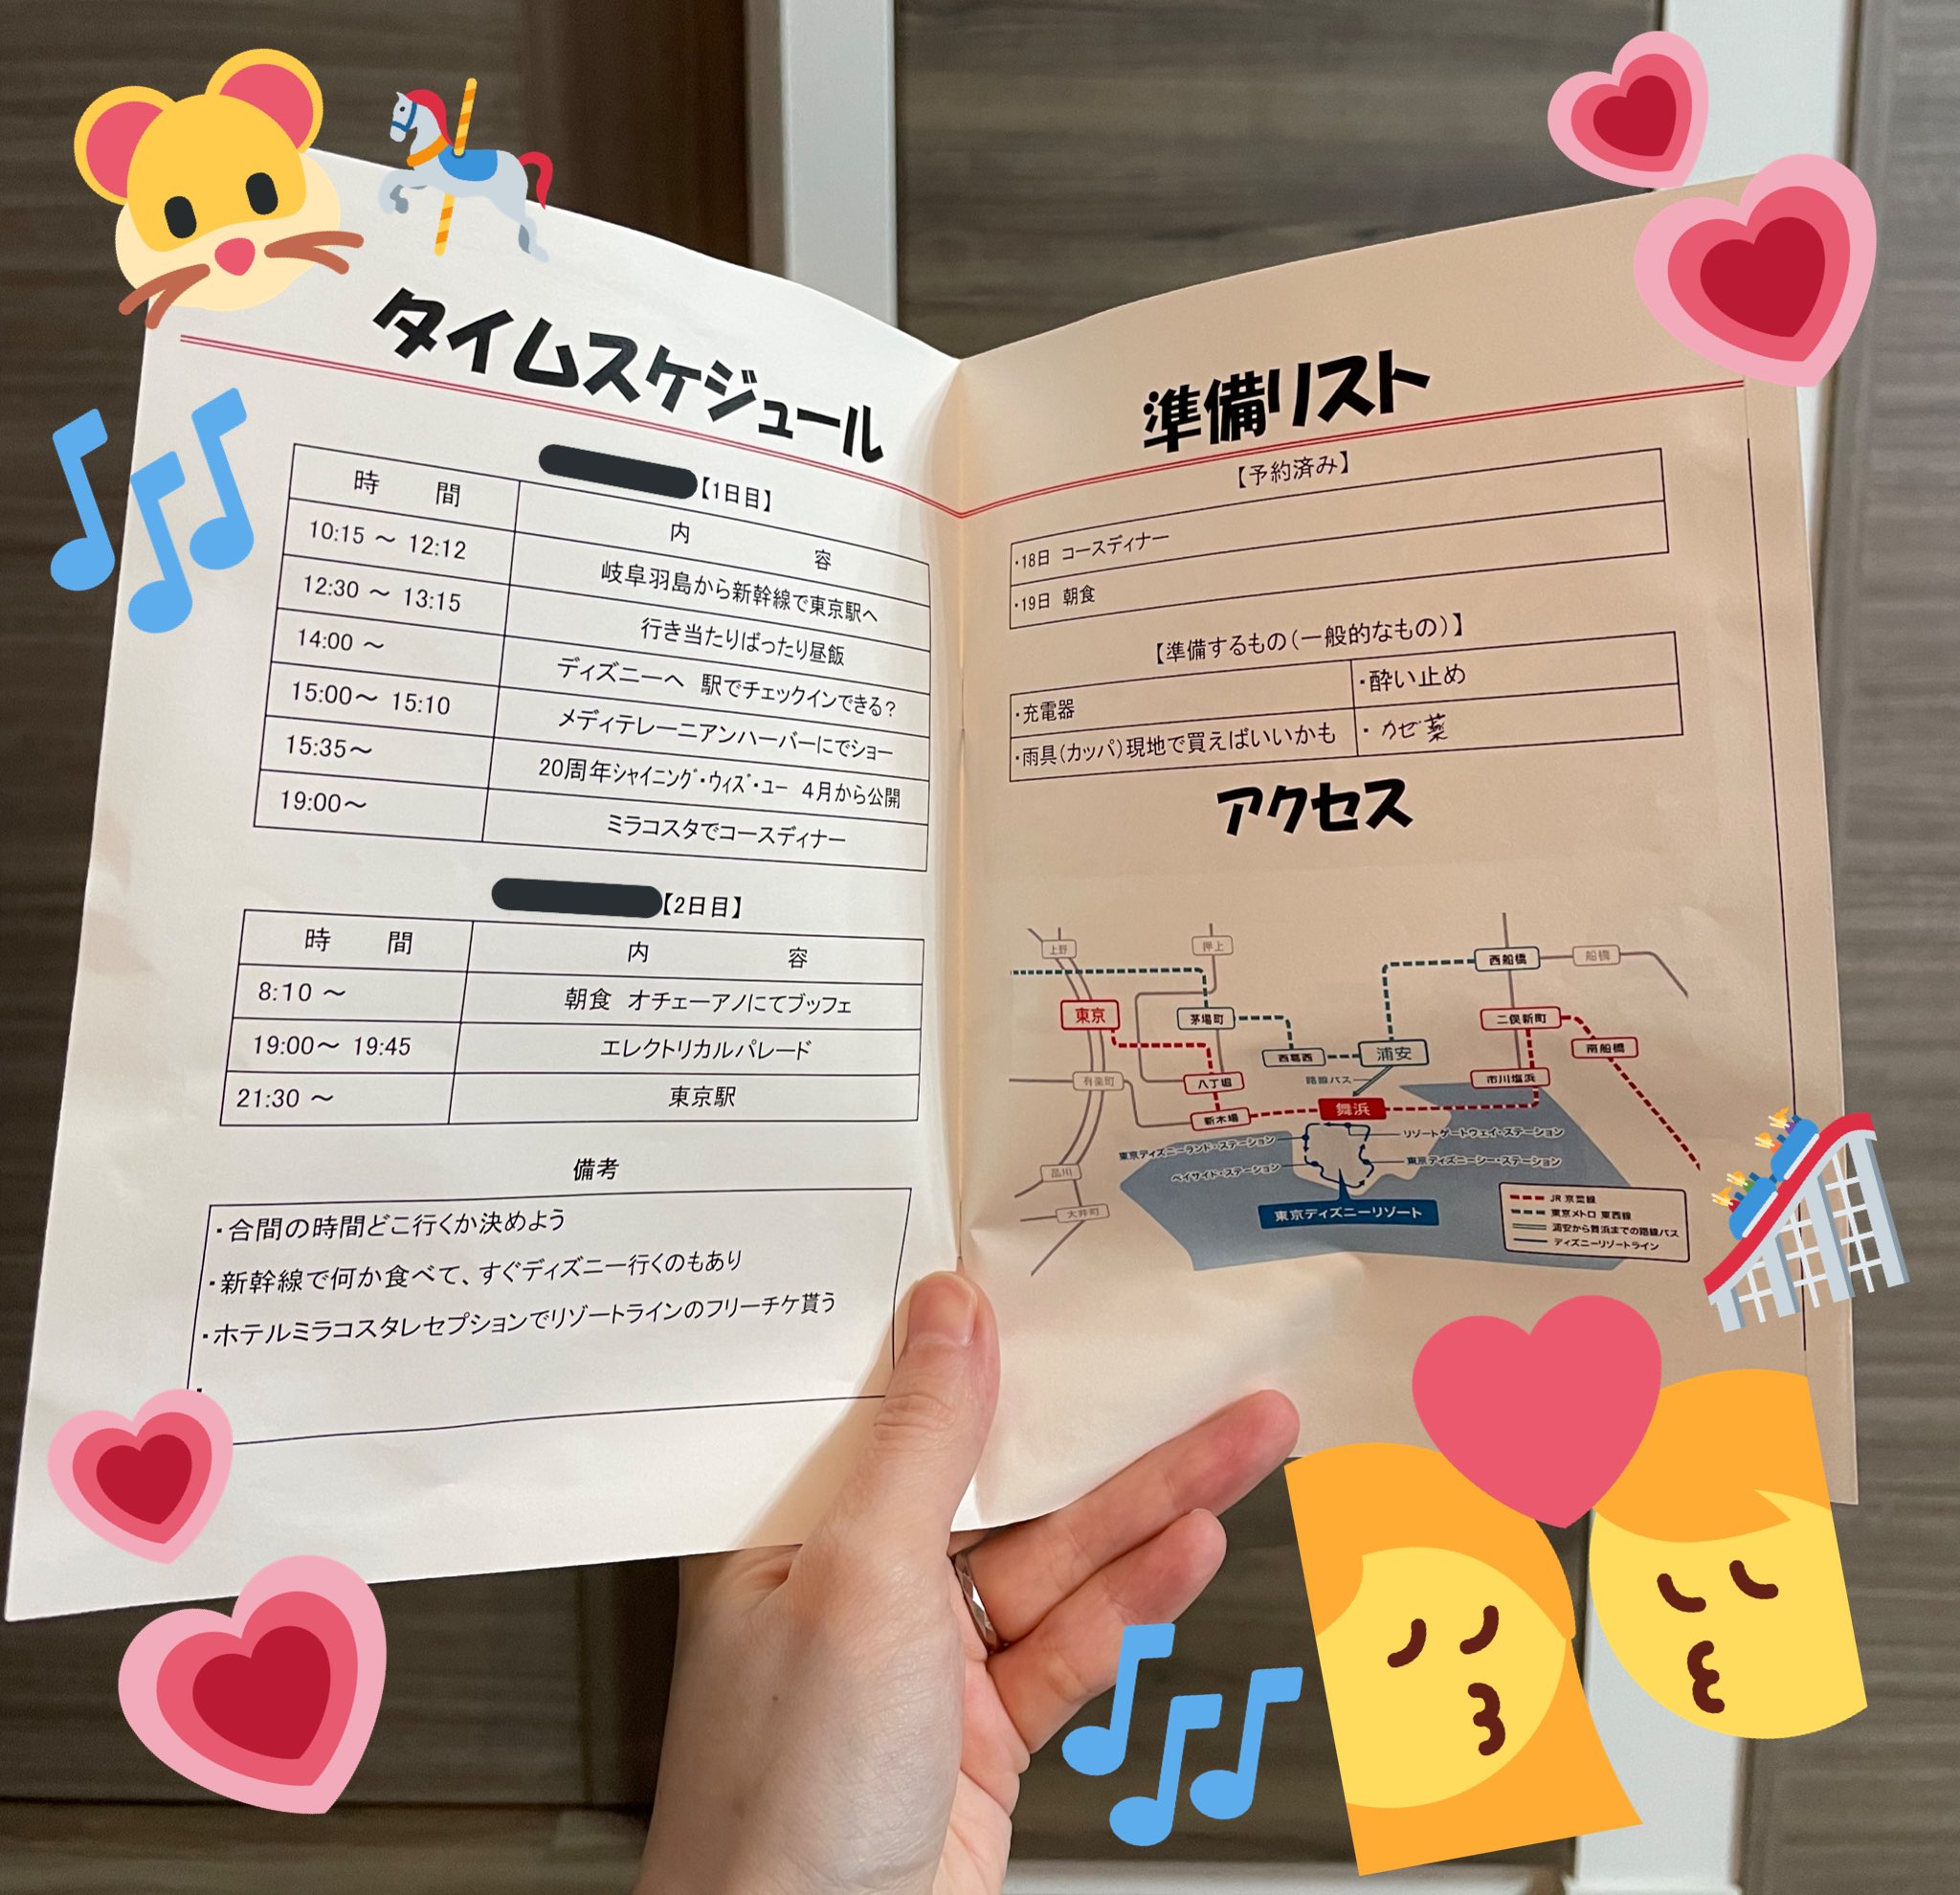 タイムスケジュール
【1日目】
時　間　内　容
10:15 ～ 12:12　岐阜羽島から新幹線で東京駅へ
12:30 ～ 13:15　行き当たりばったり昼飯
14:00 ～　ディズニーへ　駅でチェックインできる？
15:00～ 15:10　メディテレーニアンハーバーにでショー
15:35～　20周年シャイニング・ウィズ・ユー　4月から公開
19:00～　ミラコスタでコースディナー
【2日目】
時　間　内　容
8:10 ～　朝食　オチェーアノにてブッフェ
19:00～ 19:45　エレクトリカルパレード
21:30 ～　東京駅
備考
・合間の時間どこ行くか決めよう
・新幹線で何か食べて、すぐディズニー行くのもあり
・ホテルミラコスタレセプションでリゾートラインのフリーチケ貰う
準備リスト
【予約済み】
・18日 コースディナー
・19日 朝食
【準備するもの（一般的なもの）】
・充電器　・酔い止め
・雨具（カッパ）現地で買えばいいかも　・カゼ薬
アクセス
上野
押上
西船橋
船橋
東京
茅場町
二俣新町
西葛西
浦安
南船橋
有楽町
八丁堀
路線バス
市川塩浜
新木場
舞浜
東京ディズニーランド・ステーション
リゾートゲートウェイ・ステーション
ベイサイド・ステーション
東京ディズニーシー・ステーション
品川
大井町
東京ディズニーリゾート
JR 京葉線
東京メトロ 東西線
浦安から舞浜までの路線バス
ディズニーリゾートライン